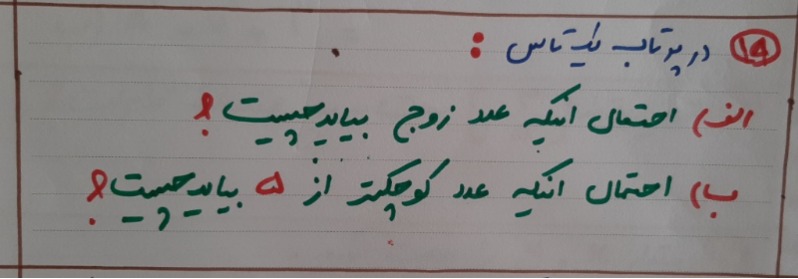 ۱۵ در پرتاب یک تاس :
الف) احتمال اینکه عدد زوج بیاید چیست ؟
ب) احتمال اینکه عدد کوچکتر از ۵ بیاید چیست ؟